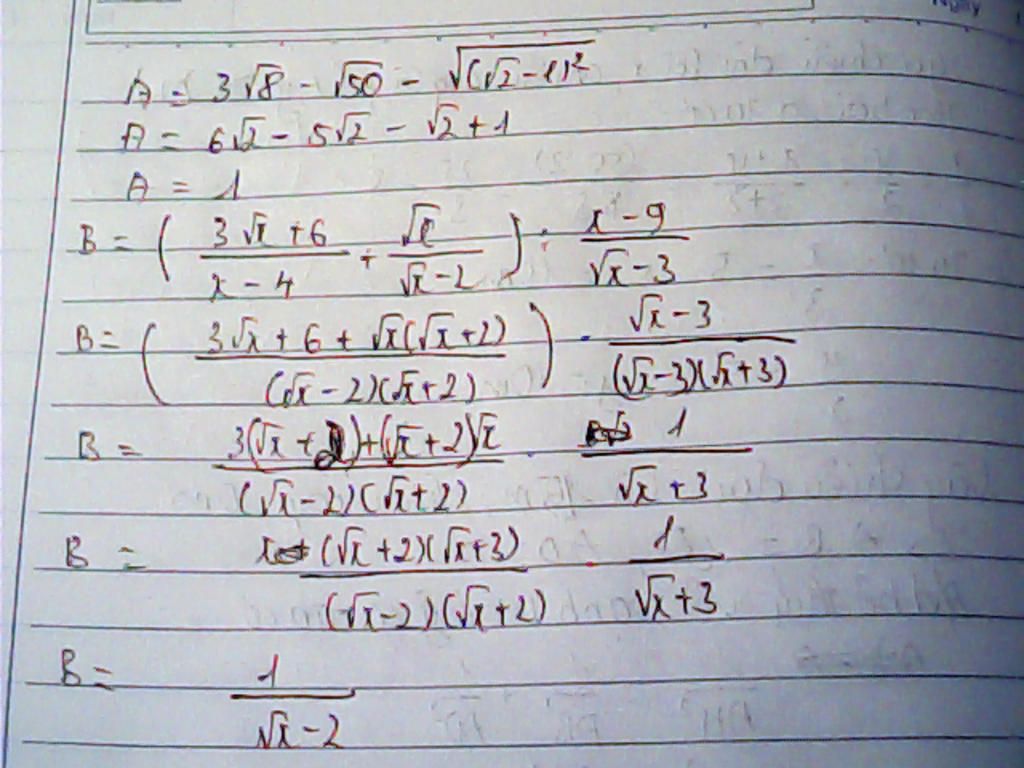 Ngày
A = 3√8 - √50 - √((√2-1)²
A = 6√2 - 5√2 - √2 + 1
A = 1
B = ( (3√x + 6)/(x - 4) + √x/(√x - 2) ) : (x - 9)/(√x - 3)
B = ( (3√x + 6 + √x(√x + 2))/((√x - 2)(√x + 2)) ) · (√x - 3)/((√x - 3)(√x + 3))
B = (3(√x + 2) + (√x + 2)√x)/((√x - 2)(√x + 2)) · 1/(√x + 3)
B = ((√x + 2)(√x + 3))/((√x - 2)(√x + 2)) · 1/(√x + 3)
B = 1/(√x - 2)